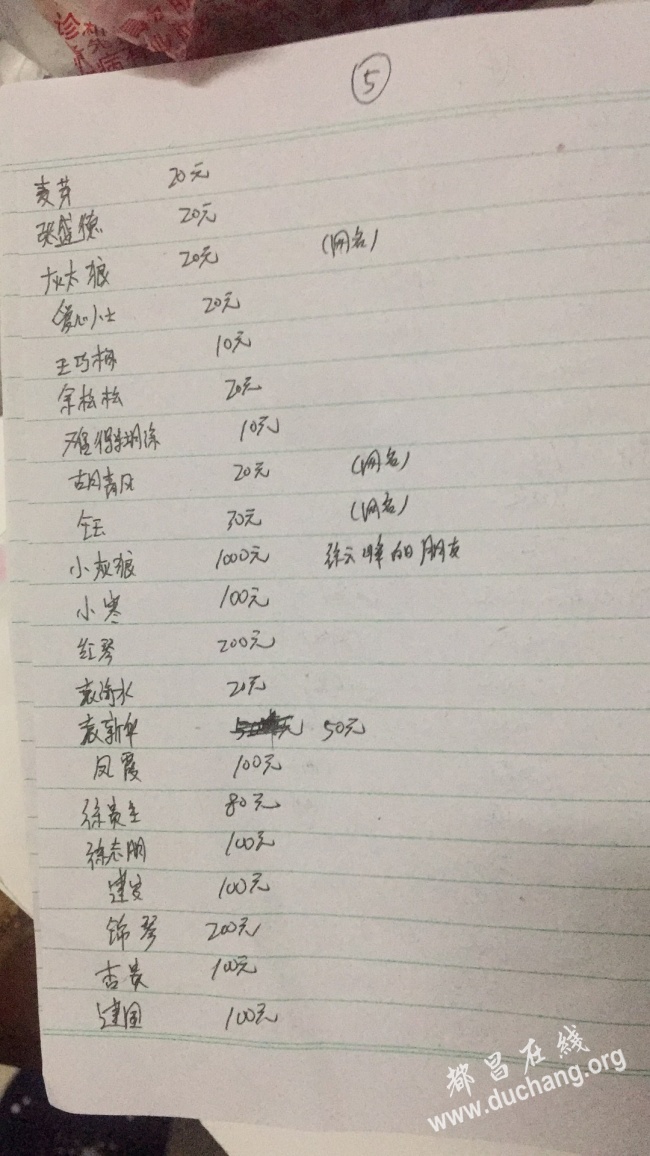 ⑤
麦芽 20元
张盛德 20元
灰太狼 20元 (网名)
爱心人士 20元
王巧梅 10元
余松松 20元
难得糊涂 10元
胡青风 20元 (网名)
钰 30元 (网名)
小灰狼 1000元 徐云峰的朋友
小寒 100元
红琴 200元
袁海水 20元
袁新华 50元
凤霞 100元
徐贵生 80元
徐志朋 100元
建安 100元
锦琴 200元
杏贵 100元
建国 100元
都昌在线
www.duchang.org